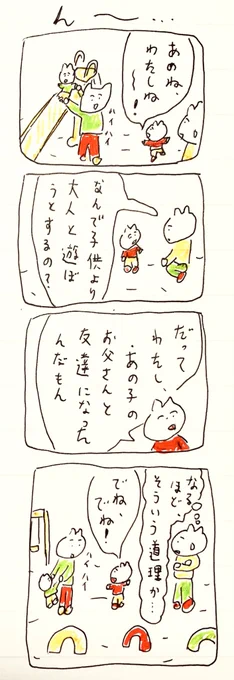 ん〜…
あのね
わたしね
〜!
ハイハイ
なんで子供より
大人と遊ぼ
うとするの?
だって
わたし、
あの子の
お父さんと
友達になった
んだもん
なる
ほど
そういう道理か…
でね、
でね!
ハイハイ